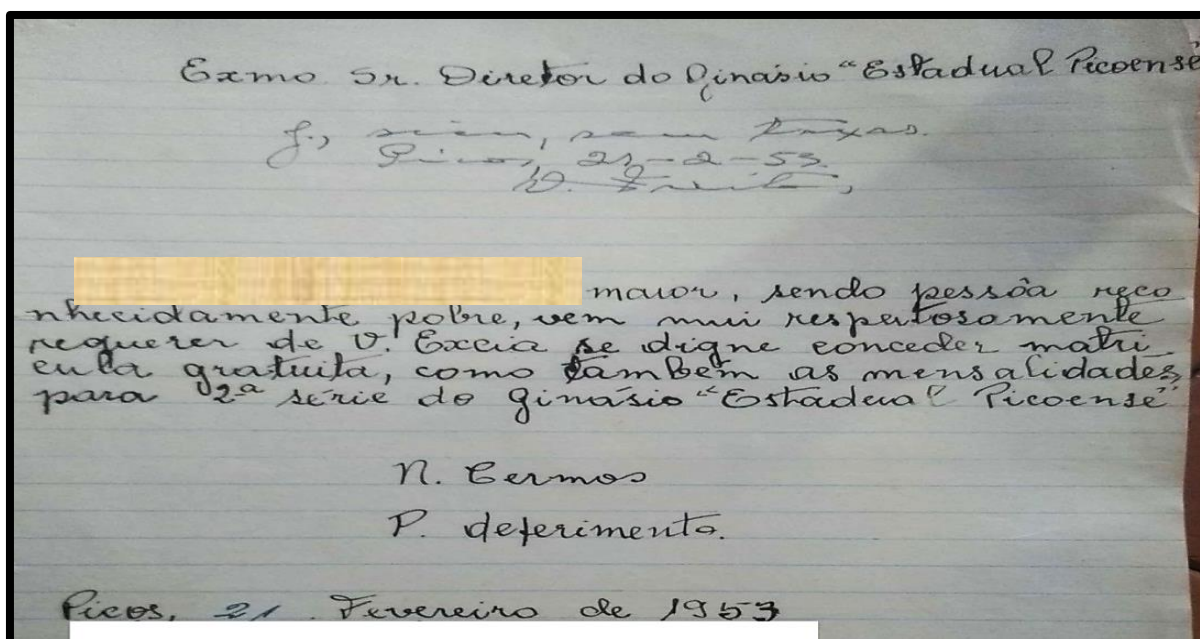 Exmo Sr. Diretor do Ginásio "Estadual Picoense"
J., sem taxas.
Picos, 21-2-53.
maior, sendo pessôa reco
nhecidamente pobre, vem mui respeitosamente
requerer de V. Excia se digne conceder matri
cula gratuita, como também as mensalidades
para 2ª serie do ginásio "Estadual Picoense"
N. Termos
P. deferimento.
Picos, 21 Fevereiro de 1953